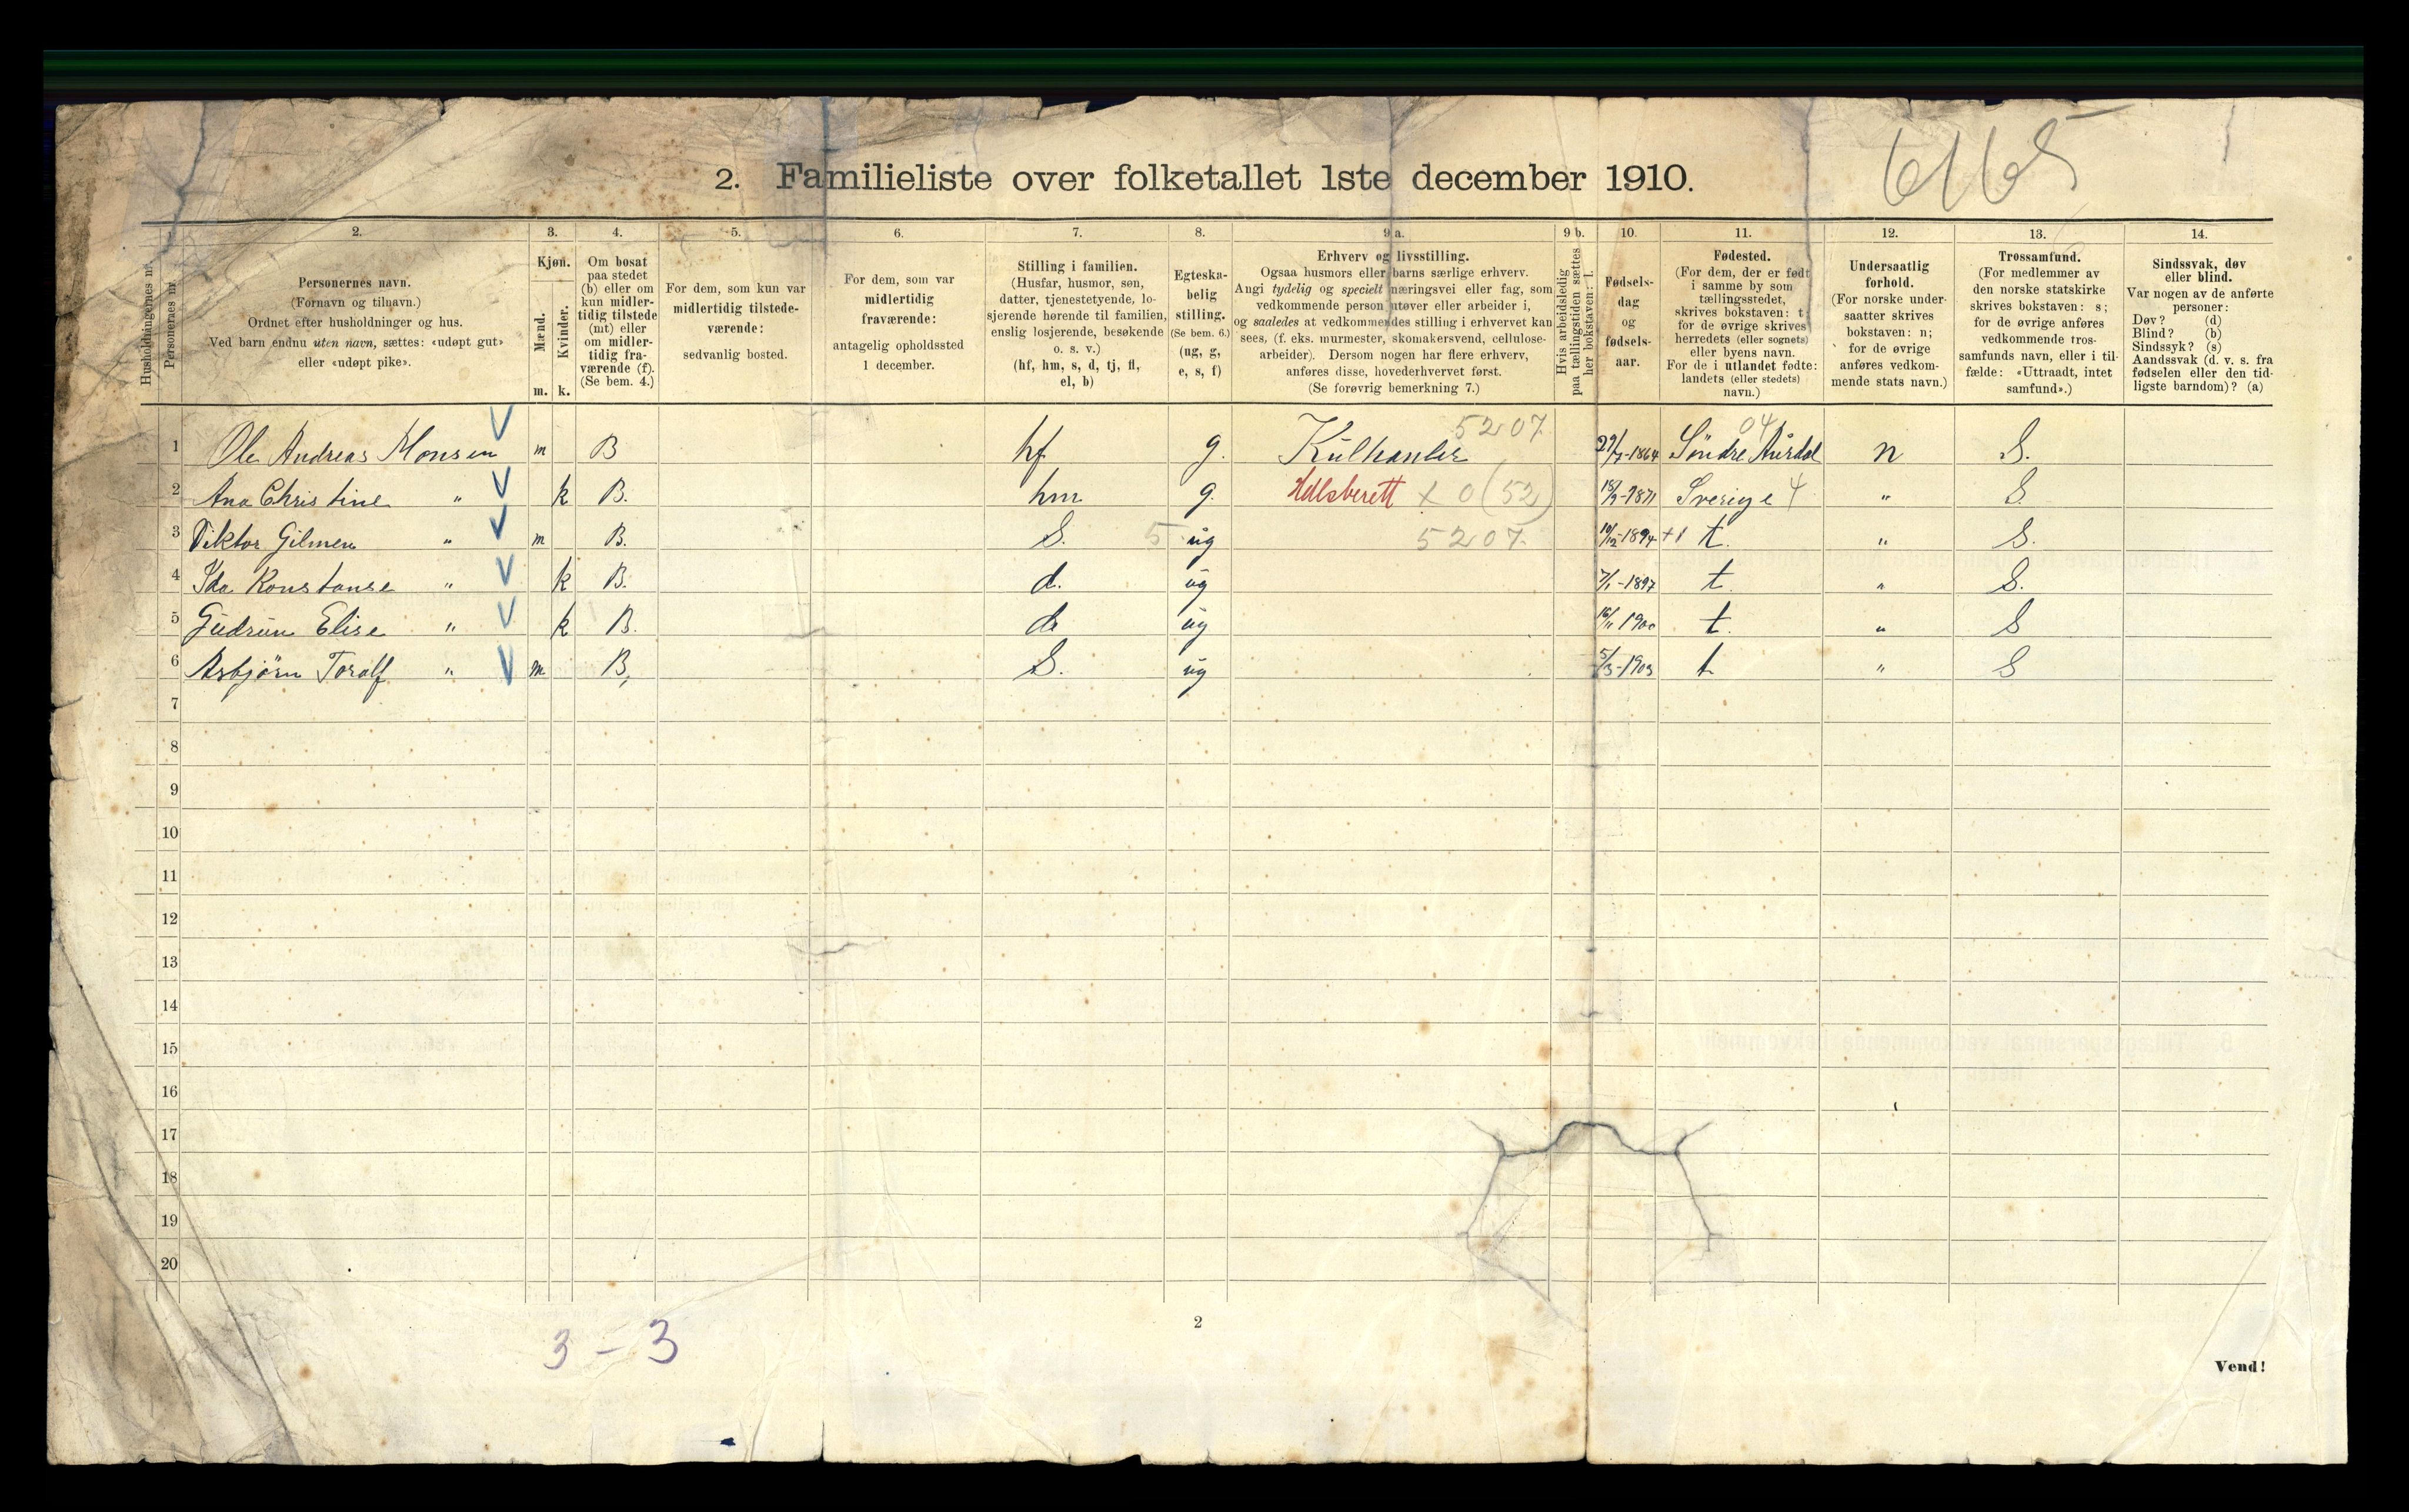 6165
2. Familieliste over folketallet 1ste december 1910.
1. 2. 3. 4. 5. 6. 7. 8. 9 a. 9 b. 10. 11. 12. 13. 14.
Husholdningernes nr.
Personernes nr.
Personernes navn.
(Fornavn og tilnavn.)
Ordnet efter husholdninger og hus.
Ved barn endnu uten navn, sættes: «udøpt gut»
eller «udøpt pike».
Kjøn.
Mænd.
Kvinder.
m. k.
Om bosat
paa stedet
(b) eller om
kun midler-
tidig tilstede
(mt) eller
om midler-
tidig fra-
værende (f).
(Se bem. 4.)
For dem, som kun var
midlertidig tilstede-
værende:
sedvanlig bosted.
For dem, som var
midlertidig
fraværende:
antagelig opholdssted
1 december.
Stilling i familien.
(Husfar, husmor, søn,
datter, tjenestetyende, lo-
sjerende hørende til familien,
enslig losjerende, besøkende
o. s. v.)
(hf, hm, s, d, tj, fl,
el, b)
Egteska-
belig
stilling.
(Se bem. 6.)
(ug, g,
e, s, f)
Erhverv og livsstilling.
Ogsaa husmors eller barns særlige erhverv.
Angi tydelig og specielt næringsvei eller fag, som
vedkommende person utøver eller arbeider i,
og saaledes at vedkommendes stilling i erhvervet kan
sees, (f. eks. murmester, skomakersvend, cellulose-
arbeider). Dersom nogen har flere erhverv,
anføres disse, hovederhvervet først.
(Se forøvrig bemerkning 7.)
Hvis arbeidsledig
paa tællingstiden sættes
her bokstaven: l.
Fødsels-
dag
og
fødsels-
aar.
Fødested.
(For dem, der er født
i samme by som
tællingsstedet,
skrives bokstaven: t;
for de øvrige skrives
herredets (eller sognets)
eller byens navn.
For de i utlandet fødte:
landets (eller stedets)
navn.)
Undersaatlig
forhold.
(For norske under-
saatter skrives
bokstaven: n;
for de øvrige
anføres vedkom-
mende stats navn.)
Trossamfund.
(For medlemmer av
den norske statskirke
skrives bokstaven: s;
for de øvrige anføres
vedkommende tros-
samfunds navn, eller i til-
fælde: «Uttraadt, intet
samfund».)
Sindssvak, døv
eller blind.
Var nogen av de anførte
personer:
Døv? (d)
Blind? (b)
Sindssyk? (s)
Aandssvak (d. v. s. fra
fødselen eller den tid-
ligste barndom)? (a)
5207 04
1 Ole Andreas Monsen m B hf g. Kulhanler 1864 Søndre Aurdal n S.
2 Ana Christine " k B. hm g. Hdlsberett x 0 (52) 18/9-1871 Sverige 4 " S
3 Viktor Gilmen " m B. S. 5 ug 5207. 10/12-1894 +1 t. " S.
4 Ida Konstanse " k B. d. ug 7/1-1897 t. " S.
5 Gudrun Elise " k B. d ug 16/11 1900 t. " S
6 Asbjørn Toralf " m B. S. ug 5/3-1903 t " S
7
8
9
10
11
12
13
14
15
16
17
18
19
20
2
3 - 3
Vend!